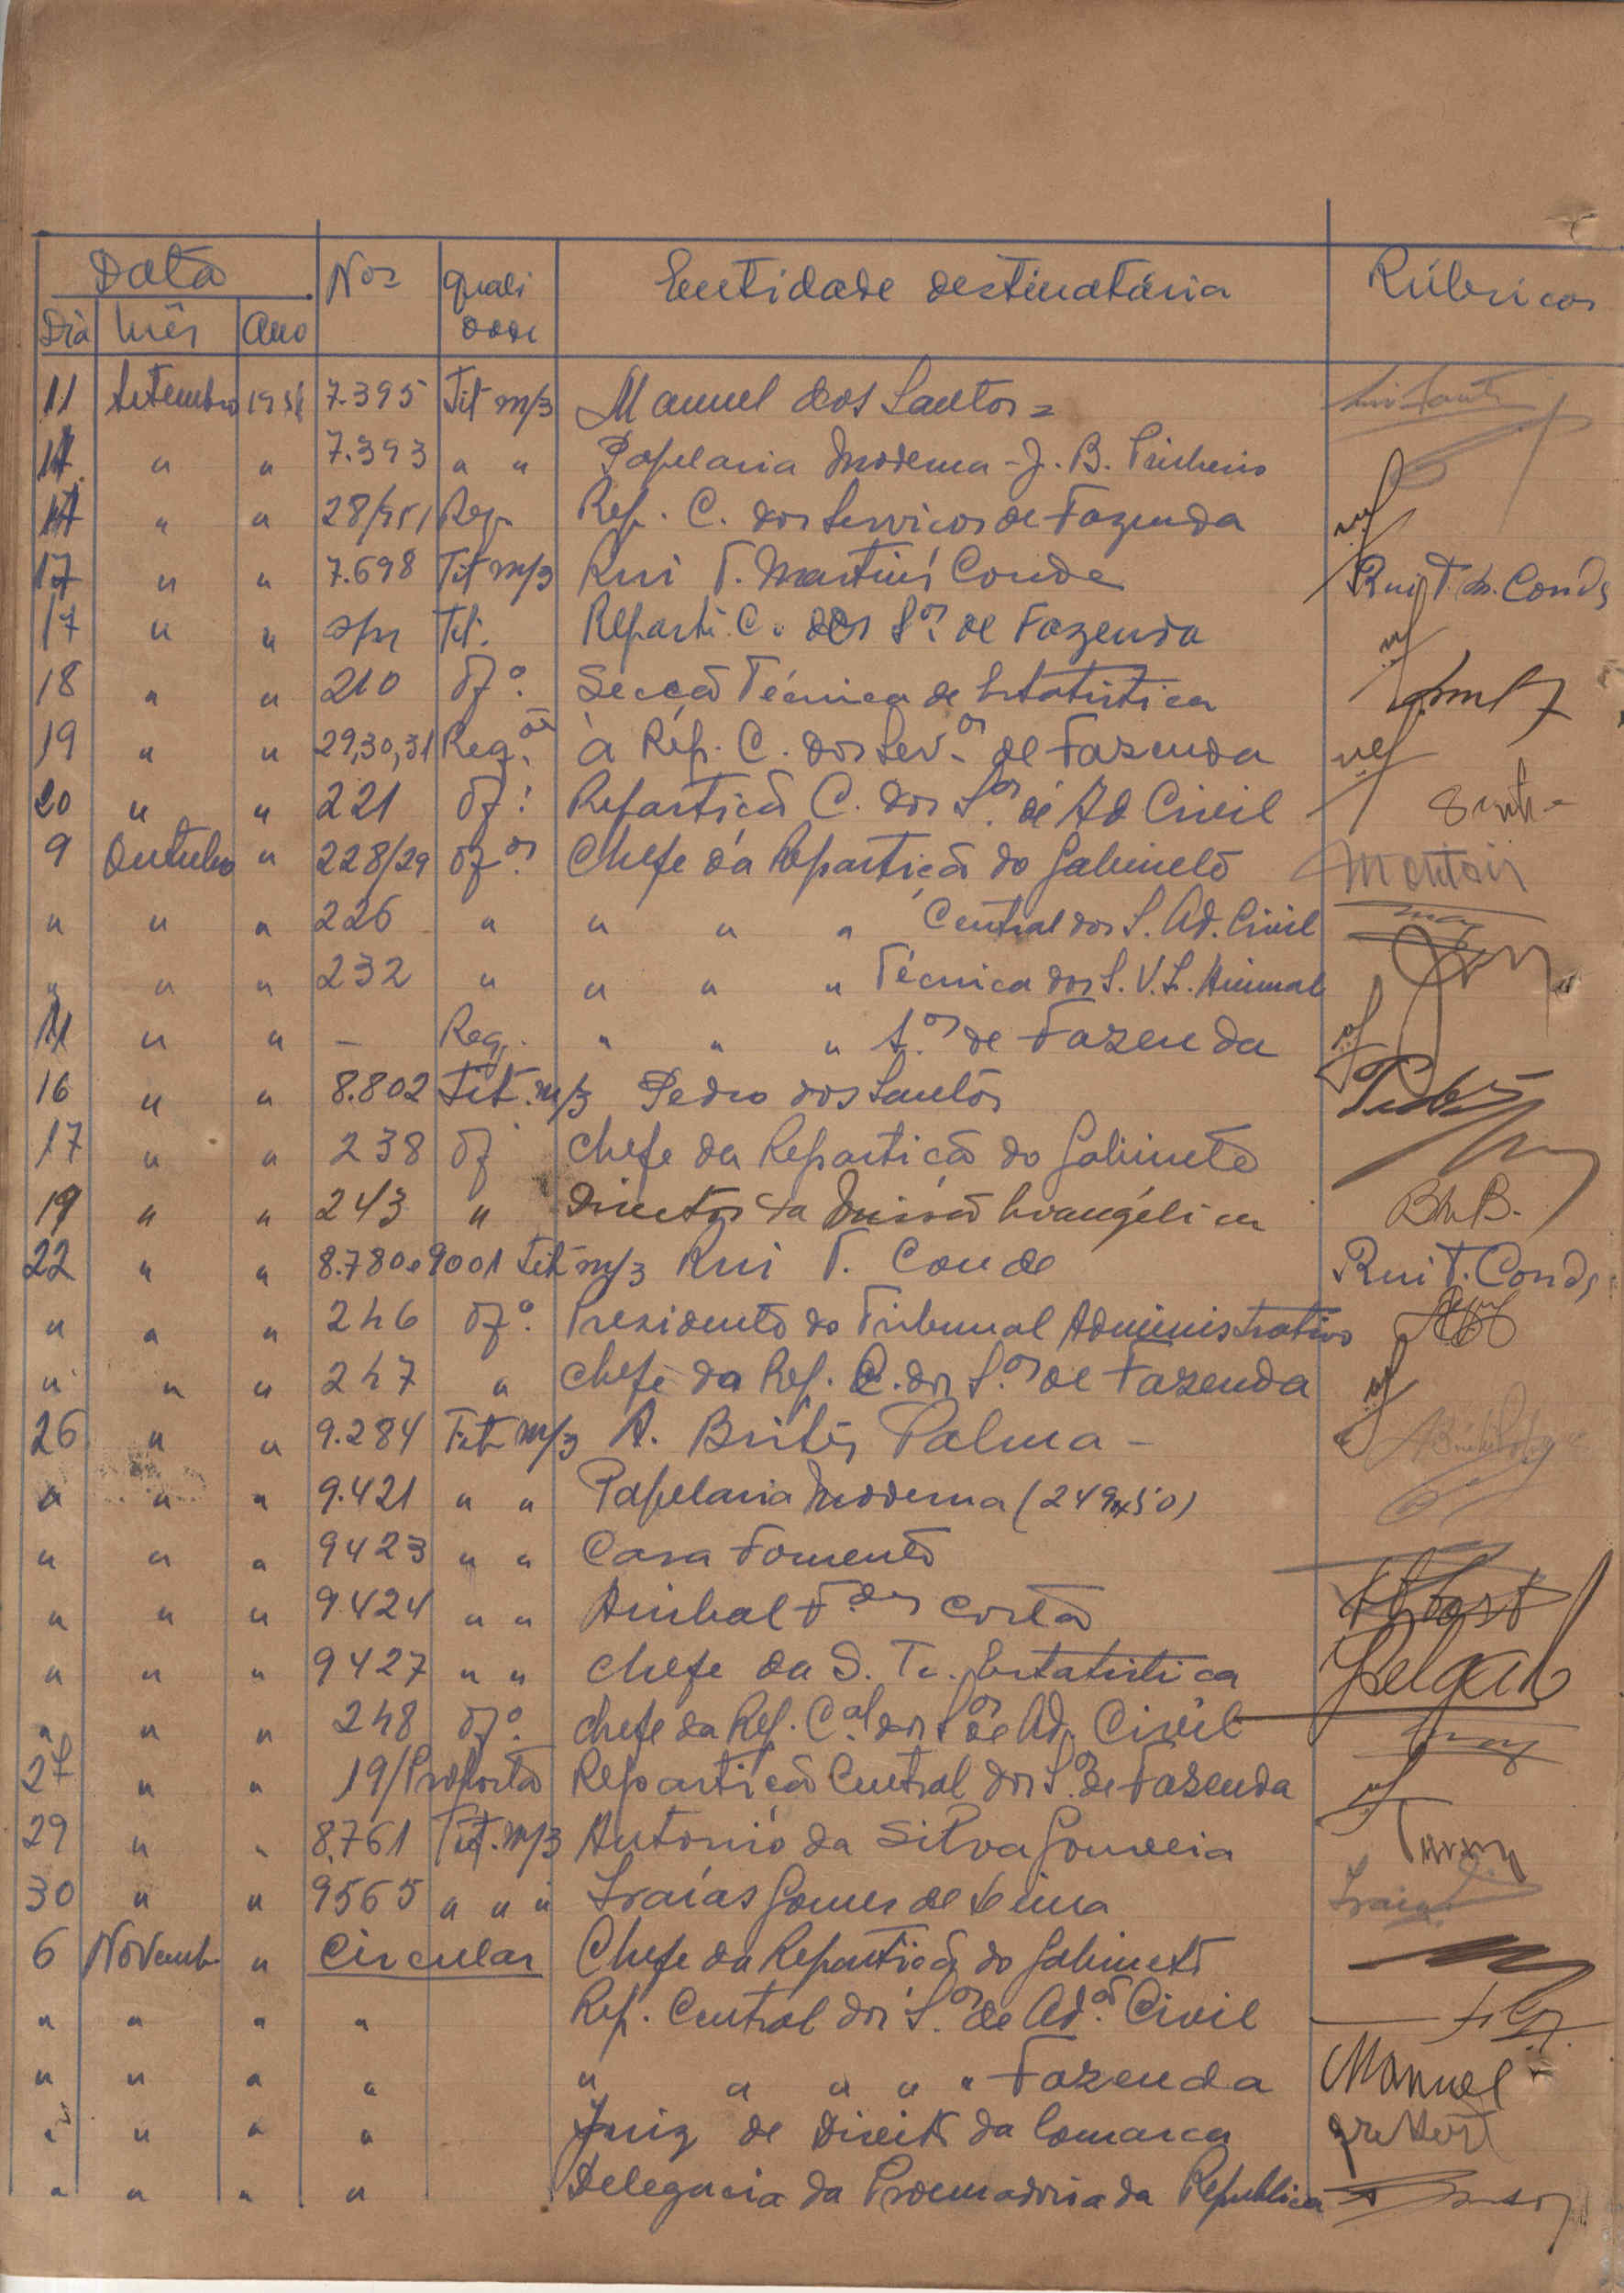 Data Nos Quali Entidade destinatária Rúbricas
Dia Mês Ano dade
11 Setembro 1951 7.395 Tit m/3 Manuel dos Santos =
17 " " 7.393 " " Papelaria Moderna - J. B.
17 " " 28/951 Req. Rep. C. dos Serviços de Fazenda
17 " " 7.698 Tit m/3 Rui T. Martins Conde Rui T. M. Conde
17 " " s/n Tit. Reparti. C. dos S.os de Fazenda
18 " " 210 Of.º Secção Técnica de Estatistica
19 " " 29,30,31 Req.ões à Rep. C. dos Ser.os de Fazenda
20 " " 221 Of.º Repartição C. dos S.os de Ad Civil
9 Outubro " 228/29 Of.os Chefe da Repartição do Gabinete
" " " 226 " " " " Central dos S. Ad. Civil
" " " 232 " " " " Técnica dos S. V. S. Animal
11 " " — Req. " " " S.os de Fazenda
16 " " 8.802 Tit. m/3 Pedro dos Santos
17 " " 238 Of Chefe da Repartição do Gabinete
19 " " 243 " Director da Missão Evangélica
22 " " 8.780 e 9001 Tit m/3 Rui T. Conde Rui T. Conde
" " " 246 Of.º Presidente do Tribunal Administrativo
" " " 247 " Chefe da Rep. C. dos S.os de Fazenda
26 " " 9.284 Tit m/3 A. Brites Palma -
" " " 9.421 " " Papelaria Moderna (249x50)
" " " 9423 " " Casa Fomento
" " " 9.424 " " Anibal F.des Costa
" " " 9427 " " Chefe da S. Tc. Estatistica
" " " 248 Of.º Chefe da Rep. C.al dos S.os de Ad. Civil
27 " " 19/Proposta Repartição Central dos S.os de Fazenda
29 " " 8.761 Tit. m/3 António da Silva Gouveia
30 " " 9565 " " " Isaías Gomes de Lima Isaias
6 Novemb. " Circular Chefe da Repartição do Gabinete
" " " " Rep. Central dos S.os de Ad.ão Civil
" " " " " " " " " Fazenda Manuel
" " " " Juiz de Direito da Comarca
" " " " Delegacia da Procuradoria da Republica